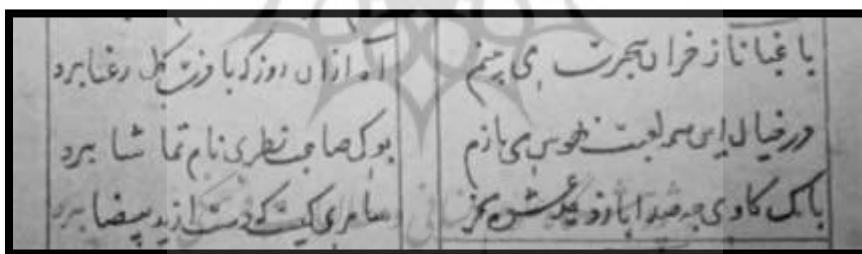 باغبانا ز خزان بیخبرت می بینم آه ازان روز که بادت گل رعنا ببرد
در خیال این همه لعبت بهوس می بازم بو که صاحب نظری نام تماشا ببرد
بانک کاوی چه صدا باز دهد عشوه مخر سامری کیست که دست از ید بیضا ببرد